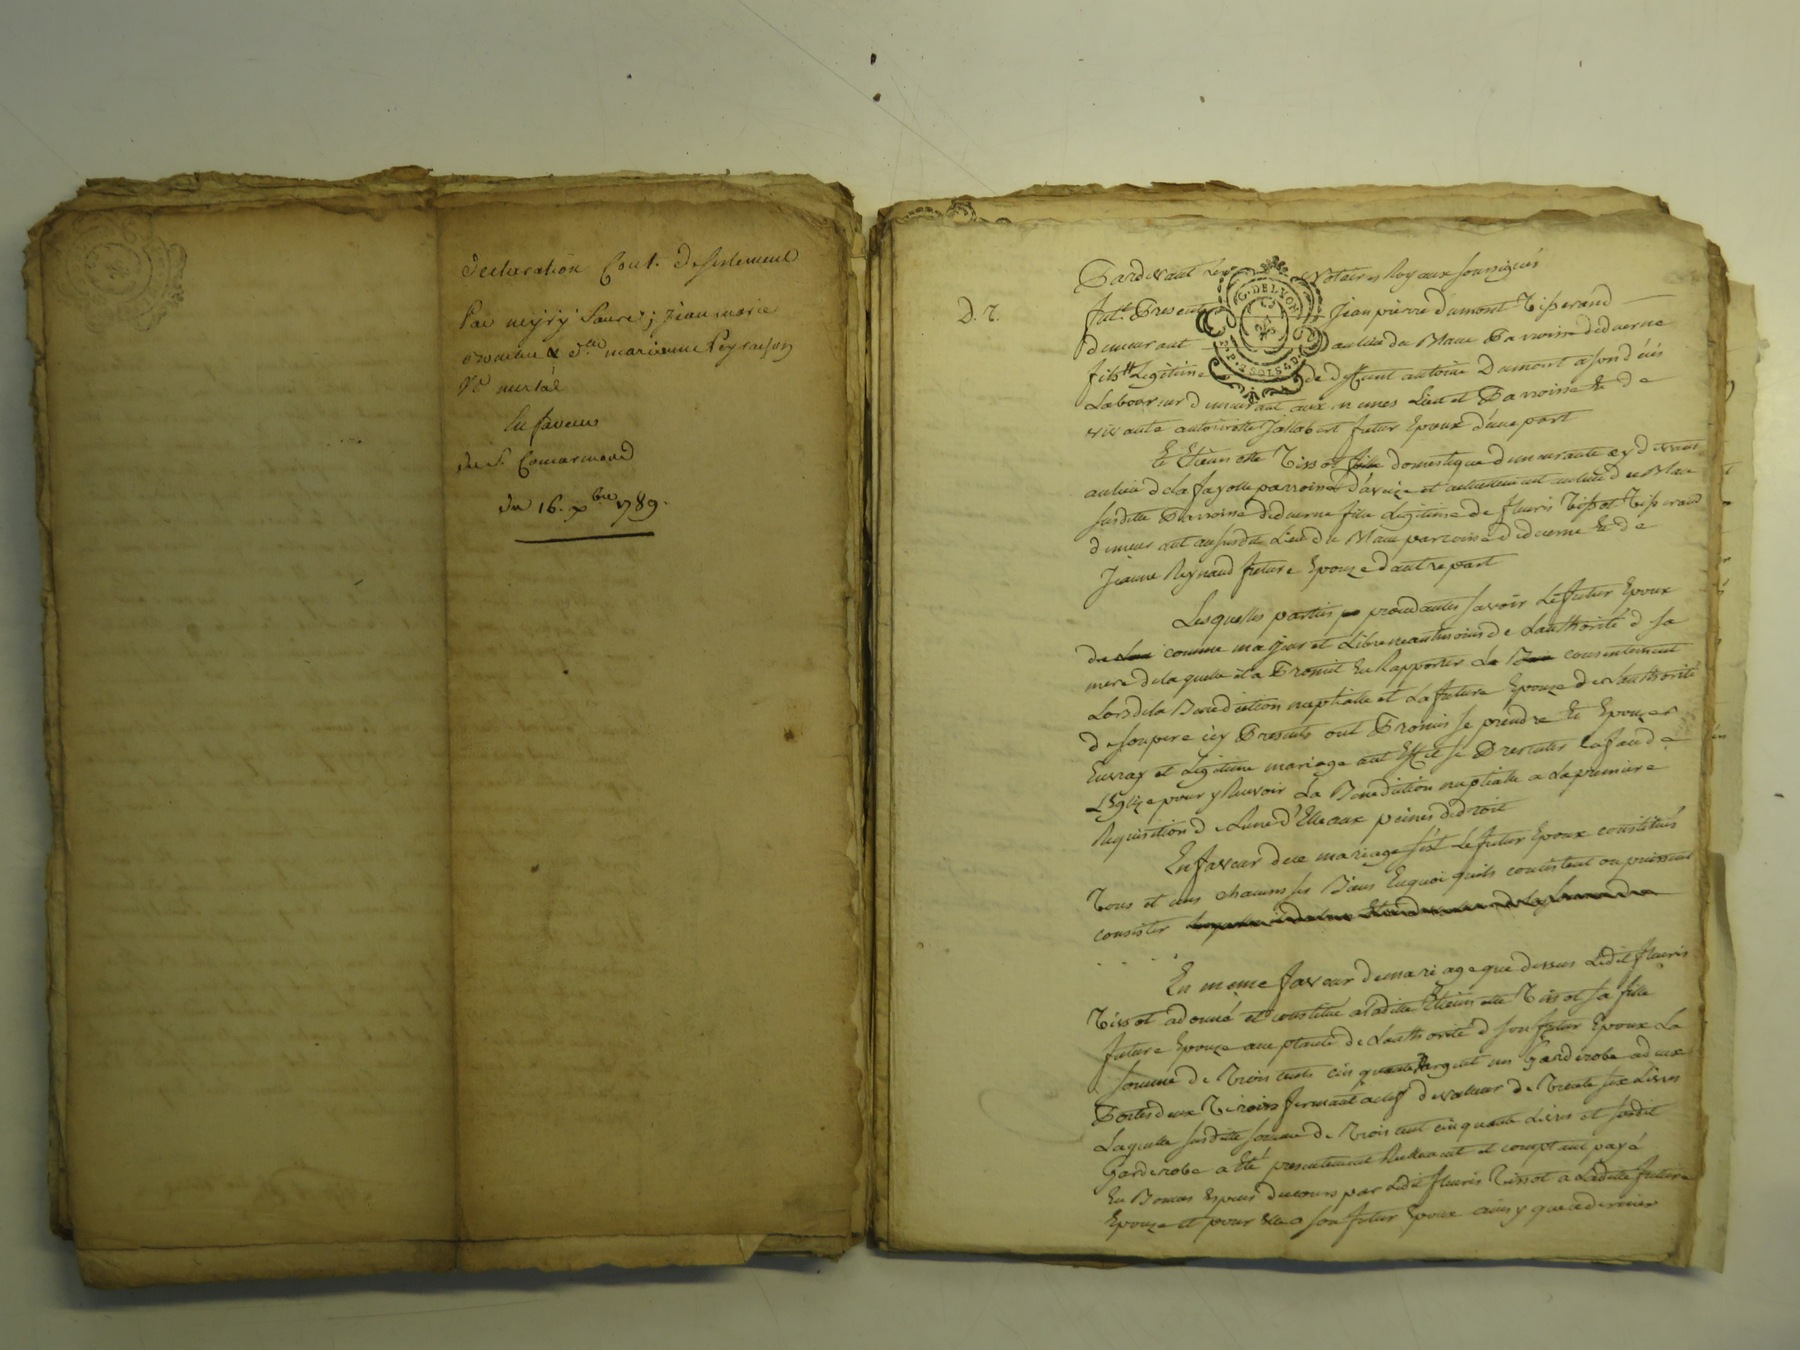 declaration Cont. desistement
Par
Jean marie
& d.lle marianne Peyrachon
V.e mertál
En faveur
du S. Comarmond
du 16. xbre 1789.
D. 7.
Pardevant Les Notaires Royaux soussignés
fut Present Jean pierre dumont Tisserand
demeurant au lieu du Mace Parroisse deduerne
fils Legitime de deffunt antoine Dumont a son décés
Laboureur demeurant aux memes Lieu et Parroisse Et de
vivante antoinette Jallabert futur Epoux d'une part
Et Etiennette Tissot fille domestique demeurante cy devant
au lieu de la fayolle parroisse d'aveize et actuellement au lieu du Mace
susditte Parroisse deduerne fille Legitime de fleuris Tissot Tisserand
demeurant au susdit Lieu du Mace parroisse deduerne Et de
Jeanne Reynaud future Epouze d'autre part
Lesquelles parties procedantes savoir Le futur Epoux
de comme majeur et Libre neantmoins de L'authorité de sa
mere de laquelle il a Promit En Rapporter Le consentement
Lors de la Benediction nuptialle et La future Epouze de L'authorité
de son pere icy Presents ont Promis se prendre Et Epouzer
En vray et Legitime mariage a cet Effet se Presenter En face de
L'Eglize pour y Recevoir La Benediction nuptialle a La premiere
Requisition de L'un d'Elle aux peines de droit
En faveur de ce mariage s'est Le futur Epoux constitués
Tous et uns chacuns ses Biens En quoi qu'ils consistent ou puissent
consister
En meme faveur de mariage que dessus Ledit fleuris
Tissot a donné et constitué a Laditte Etiennette Tissot sa fille
future Epouze acceptante de L'authorité de son futur Epoux La
somme de Trois cents cinquante argent un Garderobe a deux
Portes deux Tiroirs fermant a clef de valeur de Trente six Livres
Laquelle susditte somme de Trois cent cinquante Livres et susdit
Garderobe a Eté presentement Reellement et comptant payé
En Bonnes Especes du cours par Ledit fleuris Tissot a Laditte future
Epouze et pour Elle a son futur Epoux ainsy que ce dernier
G. DE LYON